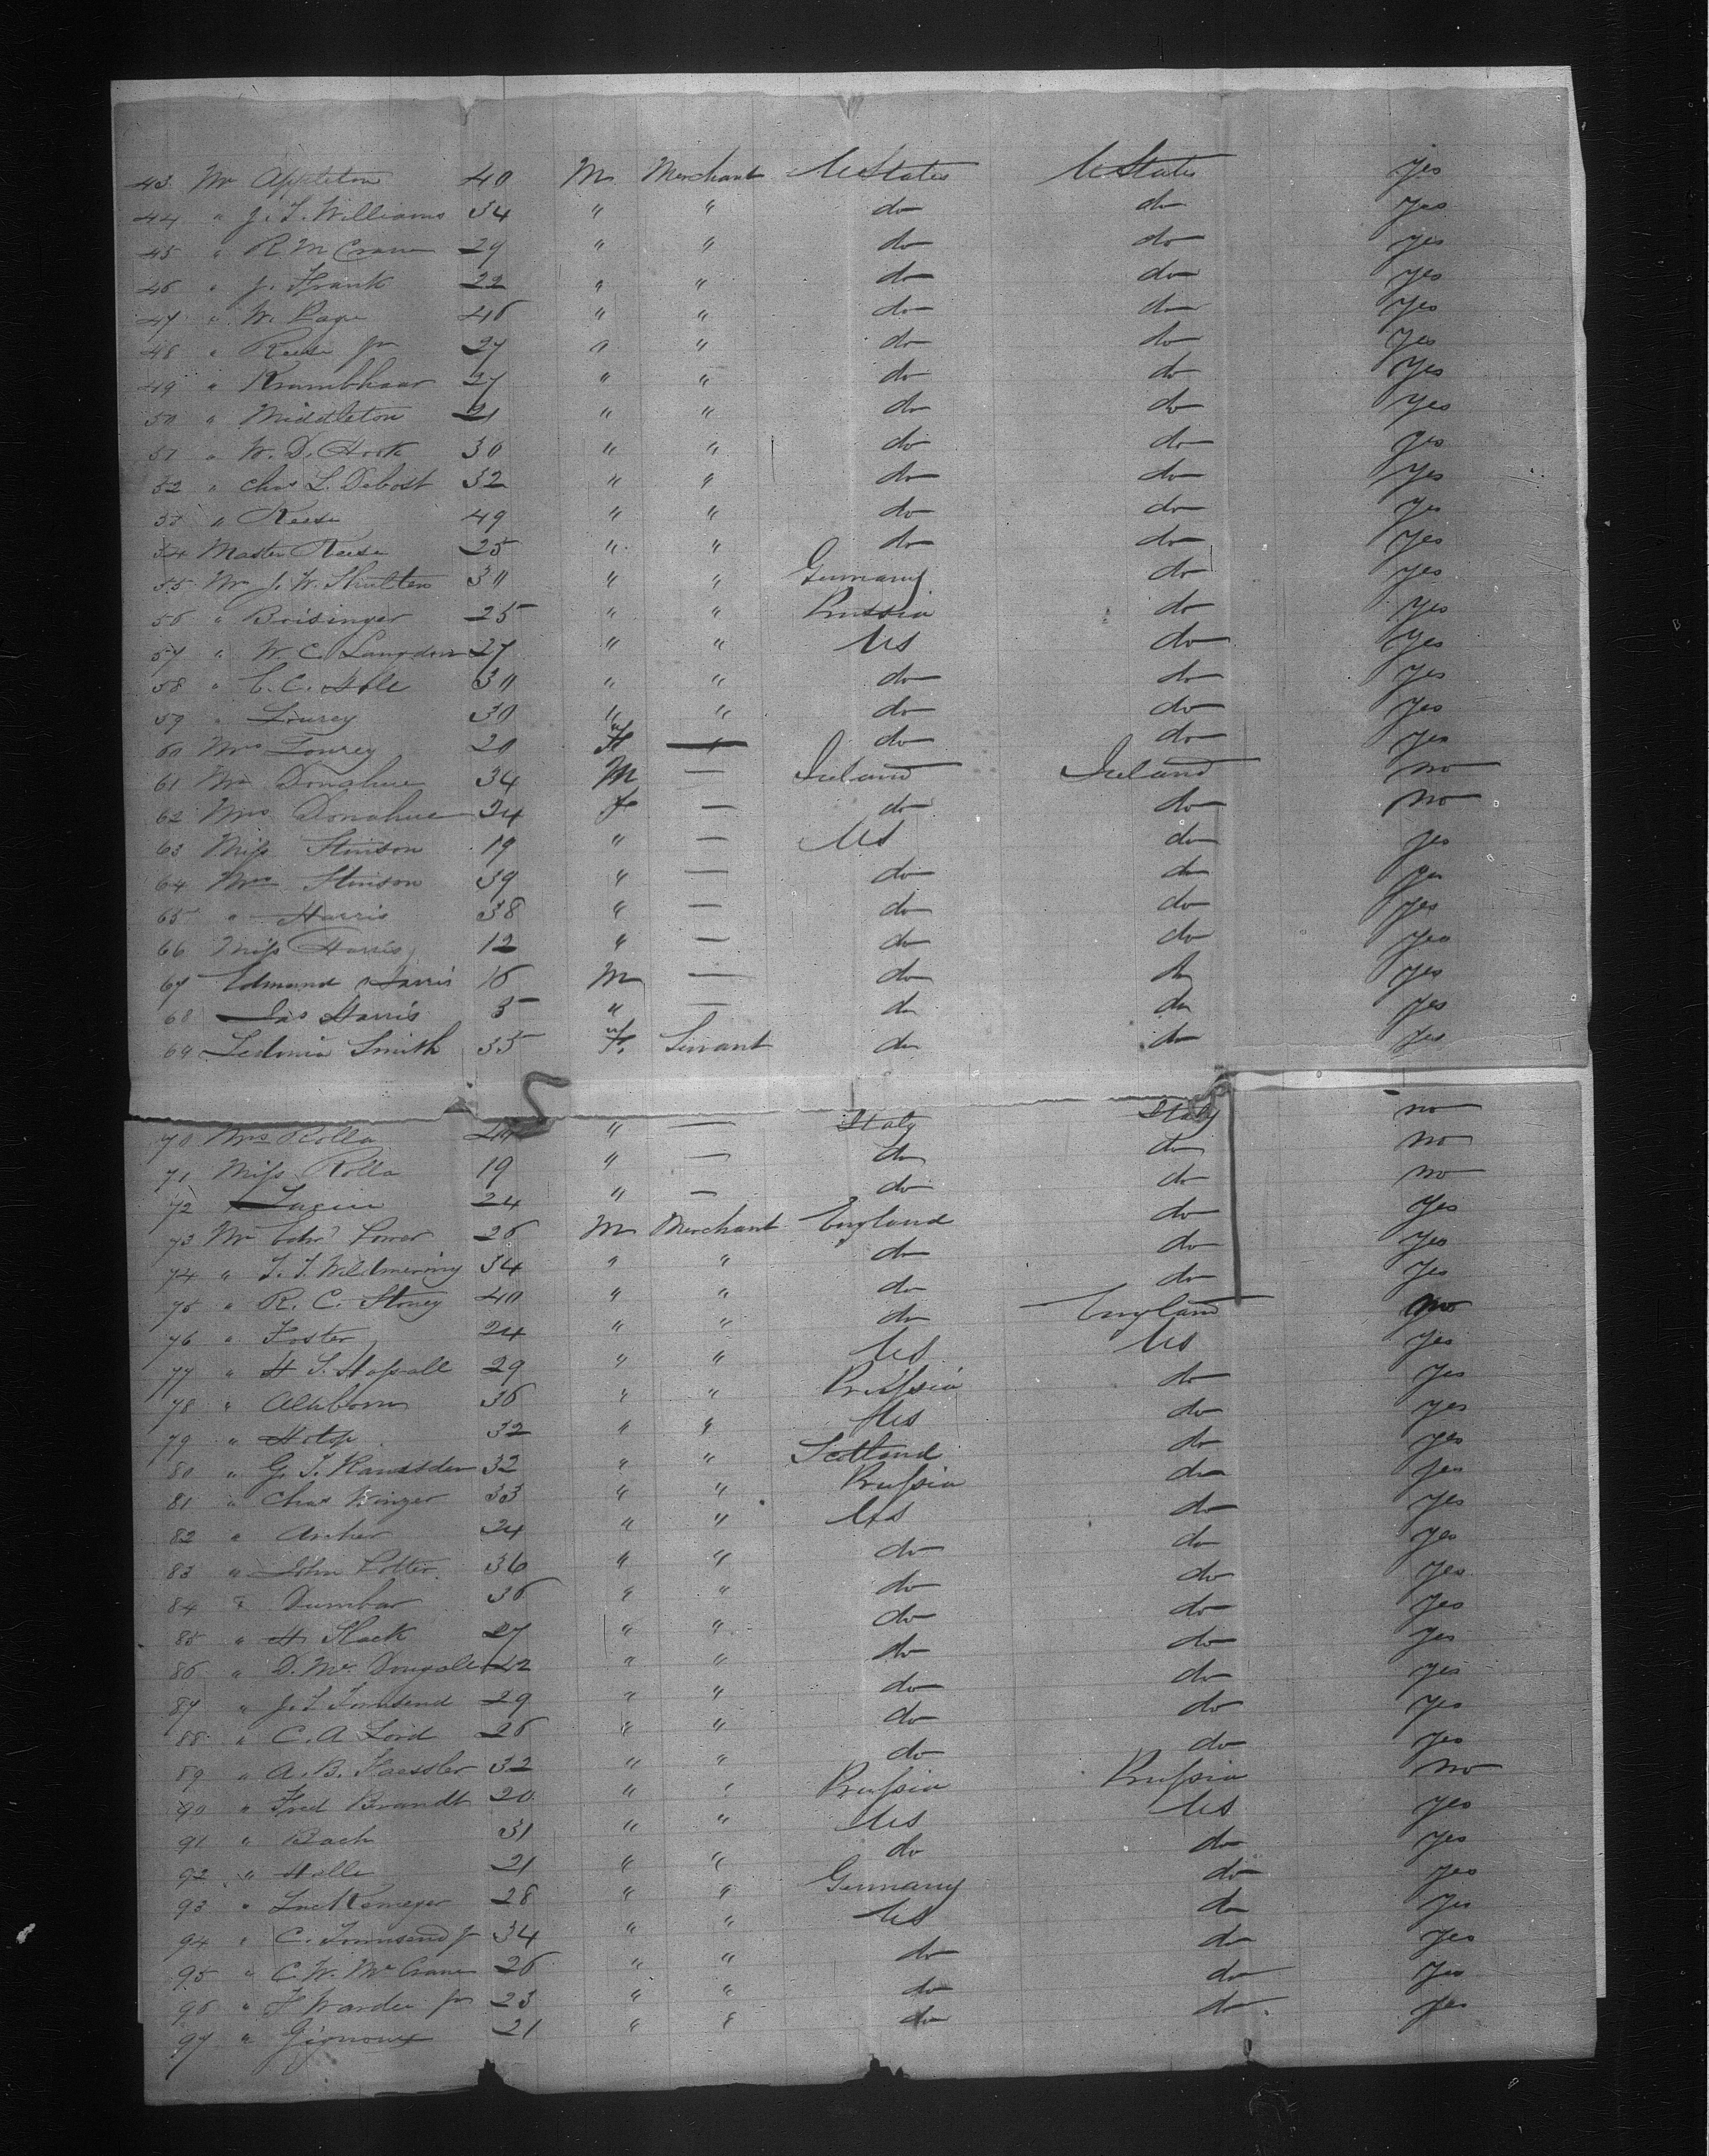 43 Mr Appleton 40 M Merchant U States U States yes
44 " J. T. Williams 34 " " do do yes
45 " R. M Crane 29 " " do do yes
46 " J. Frank 22 " " do do yes
47 " W. Page 46 " " do do yes
48 " Reese Jr 27 " " do do yes
49 " Krumbhaar 27 " " do do yes
50 " Middleton 21 " " do do yes
51 " W. D. 30 " " do do yes
52 " Chas L. Debost 32 " " do do yes
53 " Reese 49 " " do do yes
54 Master Reese 25 " " do do yes
55 Mr J. W. Shulten 30 " " Germany do yes
56 " Boisinger 25 " " Prussia do yes
57 " W. C. Langdon 27 " " US do yes
58 " C. C. Hole 30 " " do do yes
59 " Lourey 30 " " do do yes
60 Mrs Lourey 20 F — do do yes
61 Mr Donahue 34 M — Ireland Ireland no
62 Mrs Donahue 24 F — do do no
63 Miss Stinson 19 " — US do yes
64 Mrs Stinson 39 " — do do yes
65 " Harris 38 " — do do yes
66 Miss Harris 12 " — do do yes
67 Edmund Harris 16 M — do do yes
68 Jas Harris 5 " — do do yes
69 Ledonia Smith 35 F. Servant do do yes
70 Mrs Rolla " — Italy Italy no
71 Miss Rolla 19 " — do do no
72 24 " — do do no
73 Mr Edwd 26 M Merchant England do yes
74 " 34 " " do do yes
75 " R. C. Stoney 40 " " do do yes
76 " Foster 24 " " do England no
77 " H S. Hassall 29 " " US US yes
78 " Ahlborn 36 " " Prussia do yes
79 " Hotop 32 " " US do yes
80 " G. T. Ramsden 32 " " Scotland do yes
81 " Chas Winger 33 " " Prussia do yes
82 " Archer 24 " " US do yes
83 " John Potter 36 " " do do yes
84 " Dumbar 36 " " do do yes
85 " H Slack 27 " " do do yes
86 " D. Mc Dougall 22 " " do do yes
87 " J. L Townsend 29 " " do do yes
88 " C. A Lord 26 " " do do yes
89 " A. B. Haessler 32 " " do do yes
90 " Fred Brandt 20 " " Prussia Prussia no
91 " Bach 31 " " US US yes
92 " Halle 21 " " do do yes
93 " Luckemeyer 28 " " Germany do yes
94 " C. Townsend Jr 34 " " US do yes
95 " C. W. Mc Crane 26 " " do do yes
96 " F Warden Jr 23 " " do do yes
97 " Gignoux 21 " " do do yes